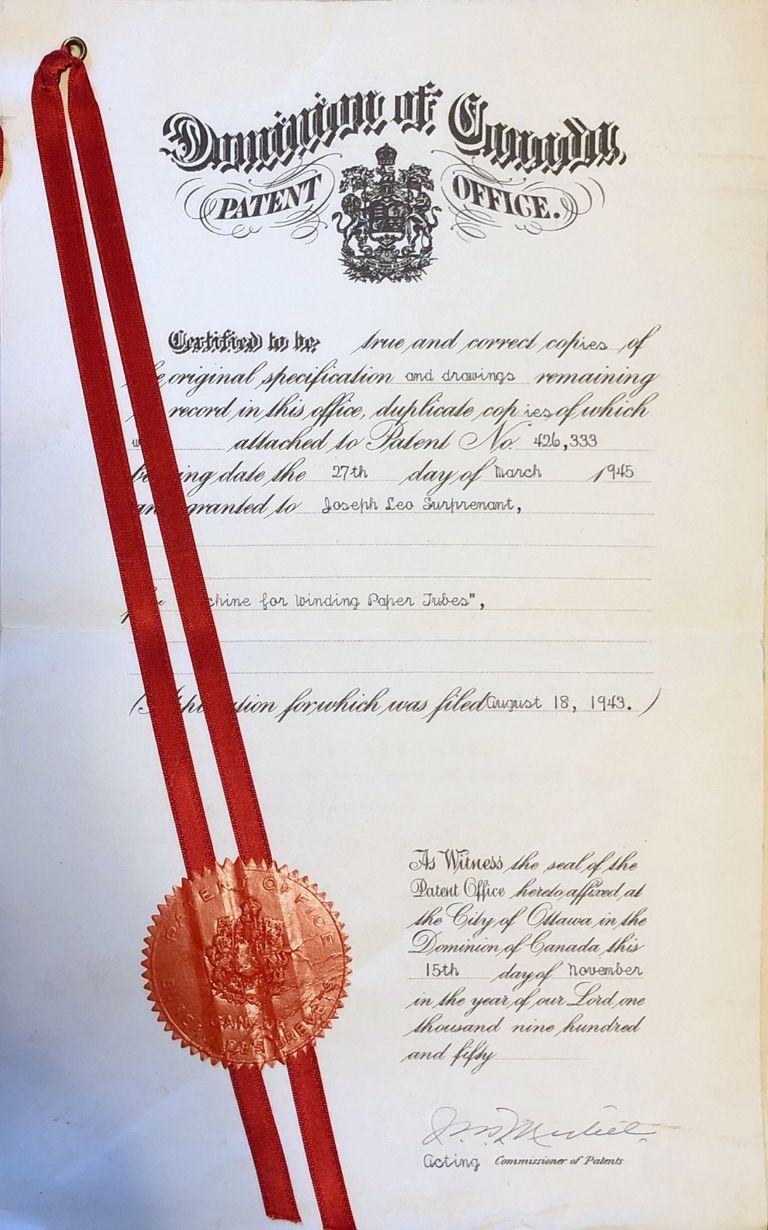 Dominion of Canada,
PATENT OFFICE.
Certified to be true and correct copies of
original specification and drawings remaining
record in this office, duplicate copies of which
attached to Patent No. 426,333
ing date the 27th day of March 1945
granted to Joseph Leo Surprenant,
chine for Winding Paper Tubes",
tion for which was filed August 18, 1943. )
As Witness the seal of the
Patent Office hereto affixed at
the City of Ottawa in the
Dominion of Canada this
15th day of November
in the year of our Lord, one
thousand nine hundred
and fifty
Acting Commissioner of Patents
PATENT OFFICE
CANADA